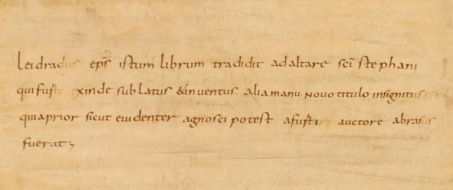 Leidradus ep̅s istum librum tradidit ad altare sc̅i stephani
qui fuit exinde sublatus & inuentus alia manu nouo titulo insignitus
quia prior sicut euidenter agnosci potest a furti auctore abrasus
fuerat